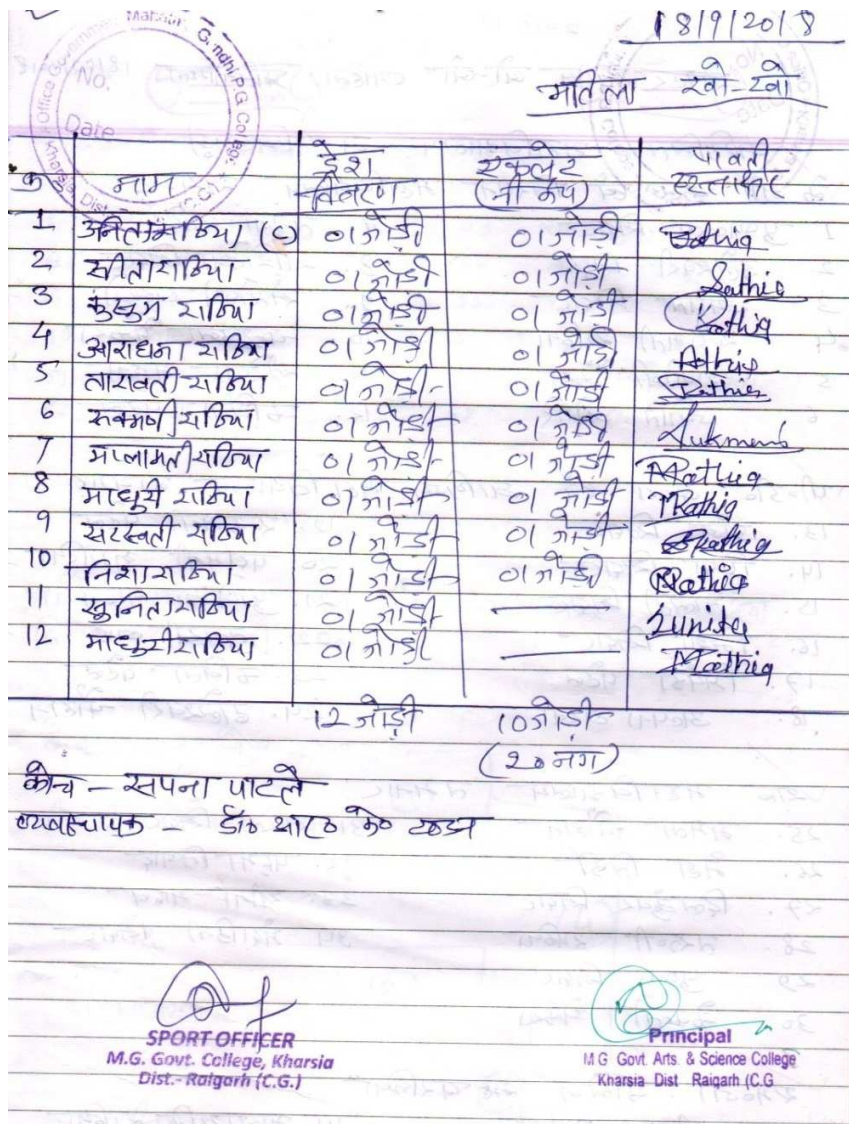 Office Government Mahatma Gandhi P.G. College
No.
Date
Kharsia, Dist. (C.G.)
18/9/2018
महिला खो-खो
क्र नाम ड्रेस वितरण एकलेट (नी कैप) पावती हस्ताक्षर
1 अनिता राठिया (C) 01 जोड़ी 01 जोड़ी Rathia
2 सीता राठिया 01 जोड़ी 01 जोड़ी Sathia
3 कुसुम राठिया 01 जोड़ी 01 जोड़ी Kathia
4 आराधना राठिया 01 जोड़ी 01 जोड़ी Athia
5 तारावती राठिया 01 जोड़ी 01 जोड़ी Rathia
6 रूकमणी राठिया 01 जोड़ी 01 जोड़ी Rukmani
7 मालामती राठिया 01 जोड़ी 01 जोड़ी Mathia
8 माधुरी राठिया 01 जोड़ी 01 जोड़ी Rathia
9 सरस्वती राठिया 01 जोड़ी 01 जोड़ी SRathia
10 निशा राठिया 01 जोड़ी 01 जोड़ी Rathia
11 सुनिता राठिया 01 जोड़ी - Sunita
12 माधुरी राठिया 01 जोड़ी — Mathia
12 जोड़ी 10 जोड़ी
(20 नग)
कोच - सपना पाटले
व्यवस्थापक - डॉ० आर० के० टण्डन
SPORT OFFICER
M.G. Govt. College, Kharsia
Dist.- Raigarh (C.G.)
Principal
M.G. Govt. Arts. & Science College
Kharsia Dist Raigarh (C.G.